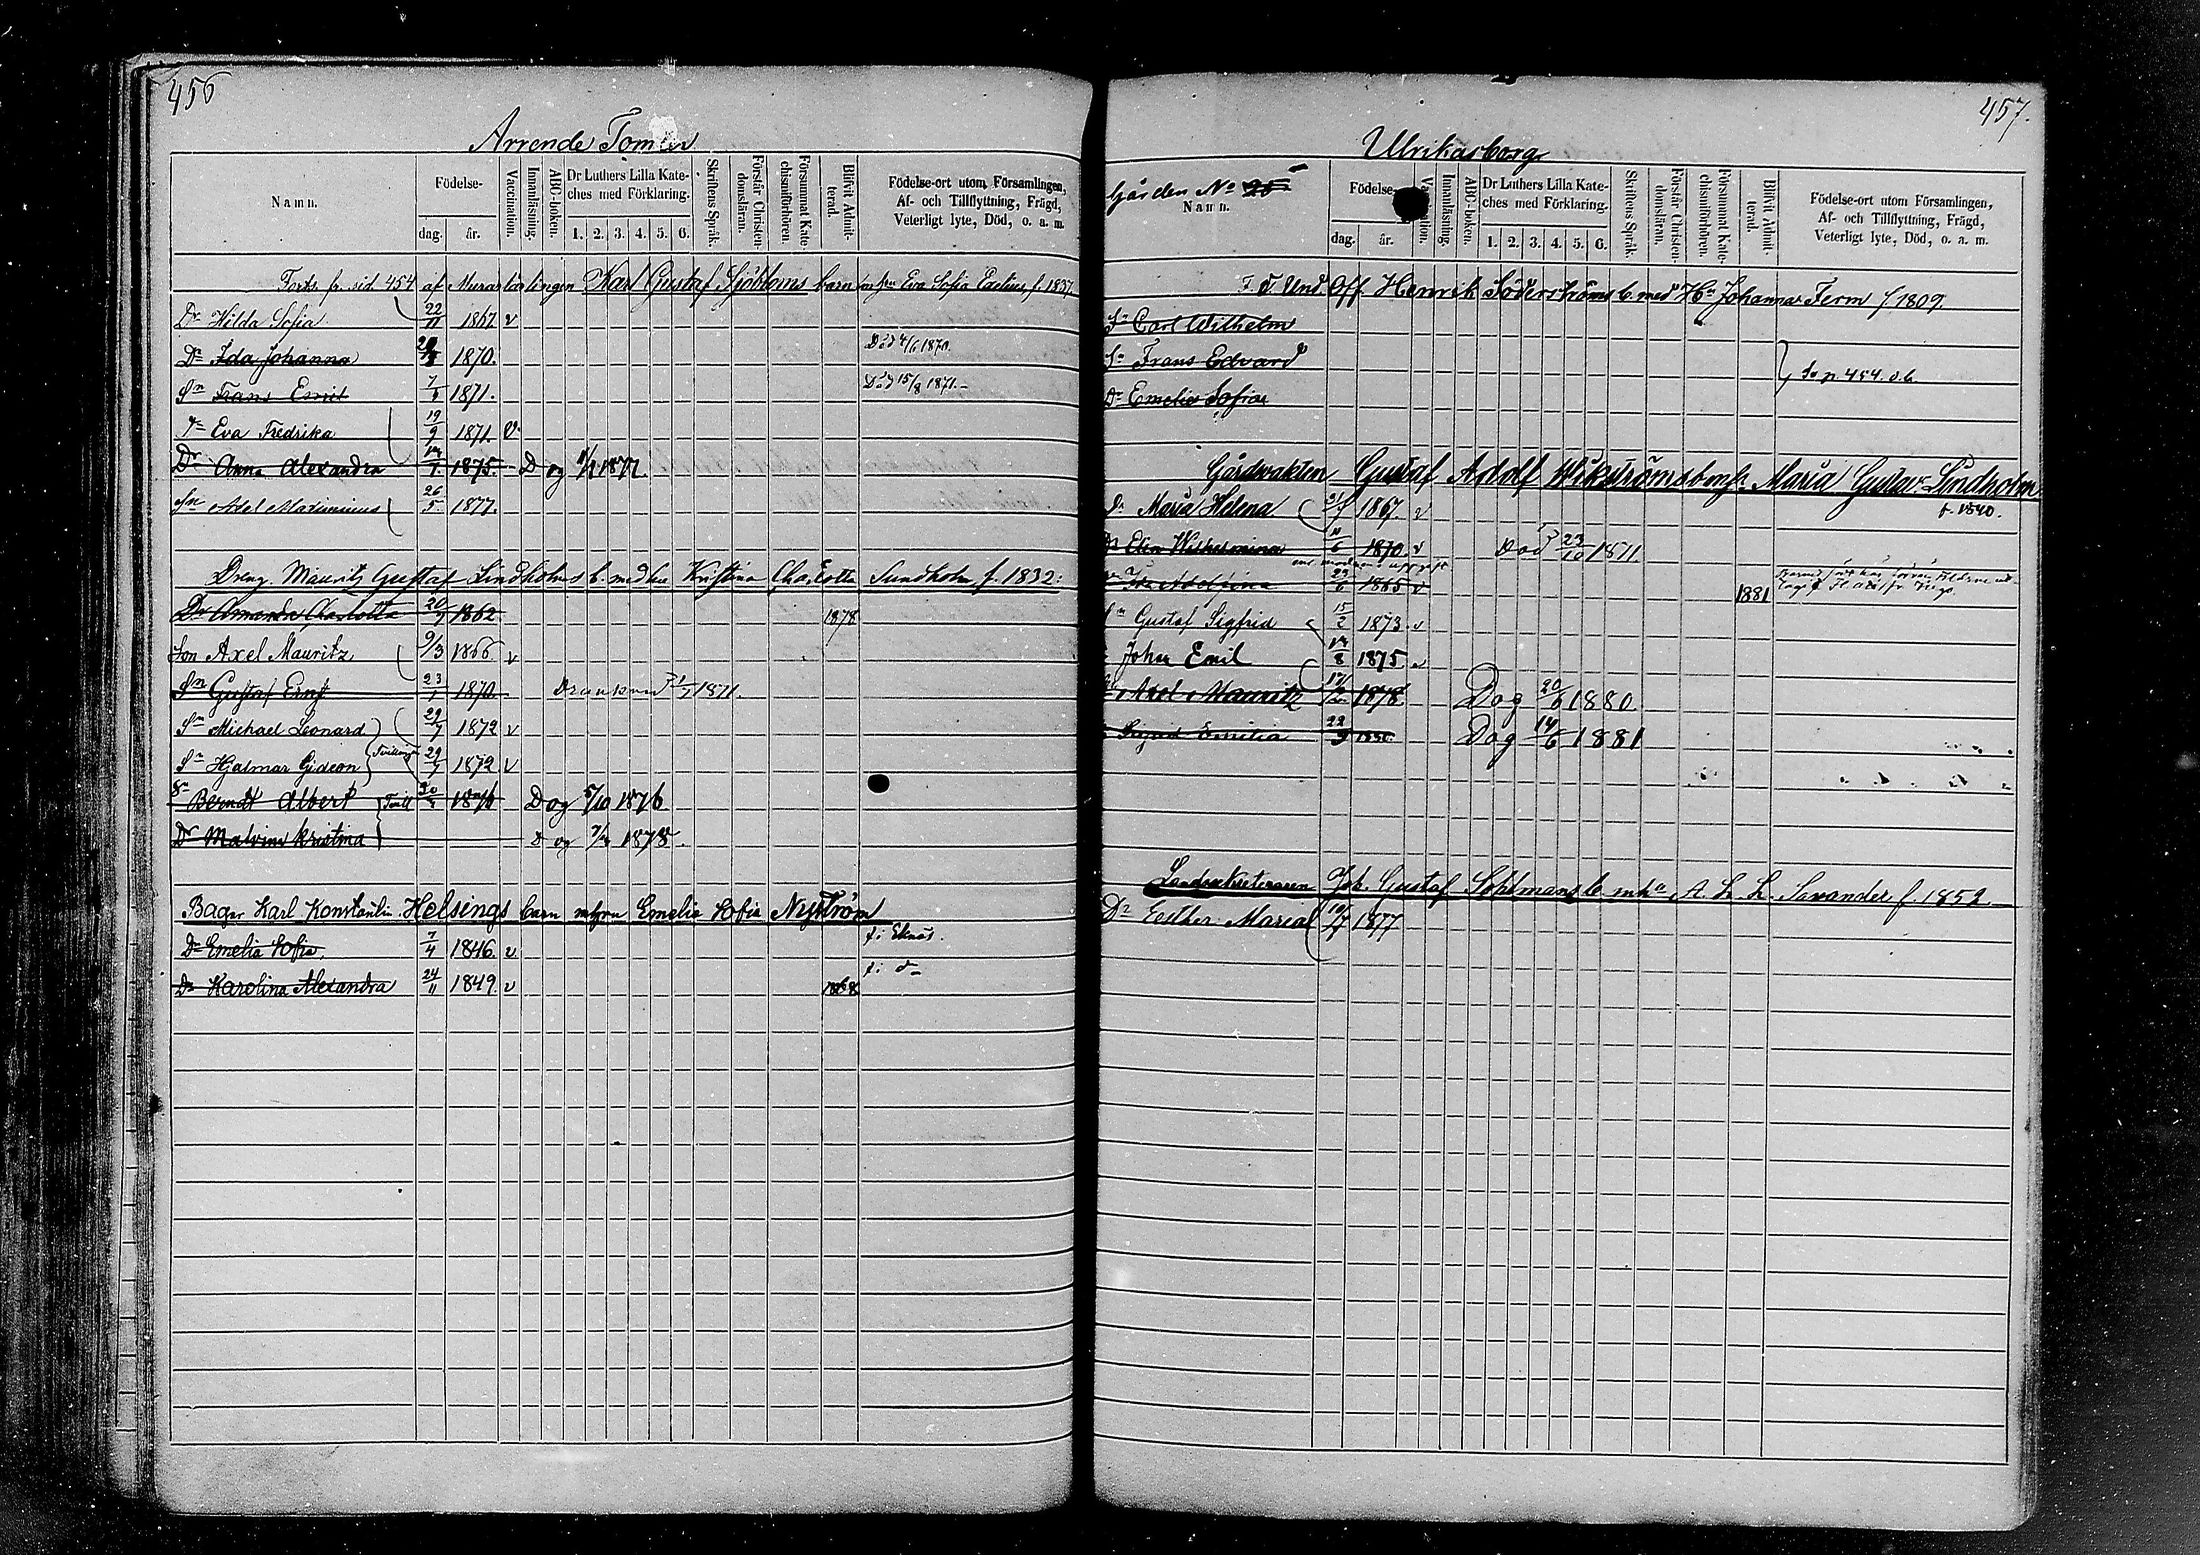 456
Arrende Tomter
Namn. Födelse- dag. år. Vaccination. Innanläsning. ABC-boken. Dr Luthers Lilla Kateches med Förklaring. 1. 2. 3. 4. 5. 6. Skriftens Språk. Förstår Christendomsläran. Försummat Katechismiförhören. Blifvit Admitterad. Födelse-ort utom Församlingen, Af- och Tillflyttning, Frägd, Veterligt lyte, Död, o. a. m.
Forts. fr. sid. 454 af Murarlärlingen Karl Gustaf Sjöbloms barn Eva Sofia f. 1837
Dr Hilda Sofia 22/11 1867 v
Dr Ida Johanna 1870. Död 4/6 1870.
Sn Frans Emil 1871. Död 15/8 1871.-
Eva Fredrika 19/9 1871. v.
Dr Anna Alexandra 1875. Dog 1877.
Sn Axel 26/5 1877.
Dreng. Mauritz Gustaf Lindholms b. med hu Kristina Cha.Lotta Sundholm f. 1832.
Dr Amanda Charlotta 20/7 1862 1878
Son Axel Mauritz 9/3 1866. v
Sn Gustaf Ernst 23/1 1870. 1871.
Sn Michael Leonard 29/7 1872 v
Sn Hjalmar Gideon Tvillingar 29/7 1872 v
Sn Berndt Albert Tvill 1876 Dog 5/10 1876
Dr Malvina Kristina Dog 1878.
Bager Karl Konstantin Helsings barn m hyru Emelia Sofia Nyström
Dr Emelia Sofia. 7/4 1846. v f. i Eknäs.
Dr Karolina Alexandra 24/11 1849. v 1868 f. i d-
457.
Ulrikasborg
Gården No 25
Namn. Födelse- dag. år. Innanläsning. ABC-boken. Dr Luthers Lilla Kateches med Förklaring. 1. 2. 3. 4. 5. 6. Skriftens Språk. Förstår Christendomsläran. Försummat Katechismiförhören. Blifvit Admitterad. Födelse-ort utom Församlingen, Af- och Tillflyttning, Frägd, Veterligt lyte, Död, o. a. m.
Und Off Henrik Söderströms b. med Hu Johanna Ferm f 1809.
Sn Carl Wilhelm
Sn Frans Edvard Se p. 454. o. b.
Dr Emelia Sofia
Gårdsvakten Gustaf Adolf Wikströms b m h. Maria Gustav. Lindholm
f. 1840.
Dr Maria Helena 1867. v
Dr Elin Wilhelmina 1870 v Död 23/10 1871.
enl. modrens uppgift
Ida Adolfina 1865 v 1881
Sn Gustaf Sigfrid 15/2 1873 v
John Emil 1875 v
Axel Mauritz 1878 Dog 20/6 1880
Sigrid Emilia 22/9 Dog 14/6 1881
Landssekreteraren Joh. Gustaf Sohlmans b m hu A. L. L. Savander f. 1852.
Dr Esther Maria 1877